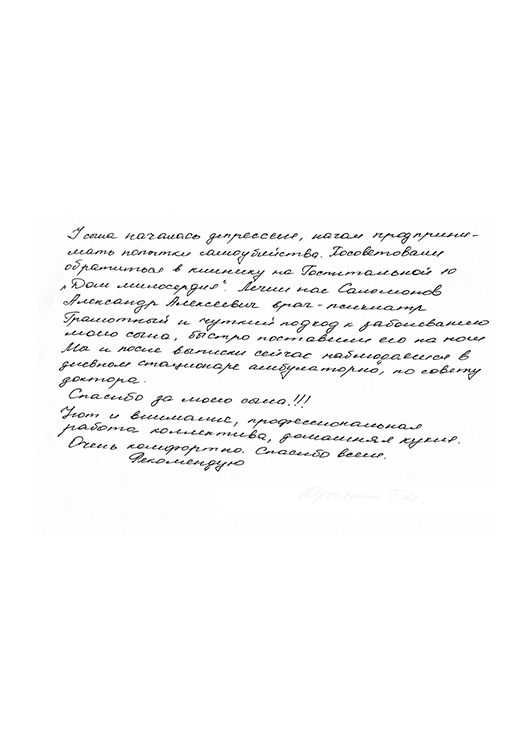 У сына началась депрессия, начал предприни-
мать попытки самоубийства. Посоветовали
обратиться в клинику на Госпитальной 10
"Дом милосердия". Лечил нас Саломонов
Александр Алексеевич врач-психиатр
Грамотный и чуткий подход к заболеванию
моего сына, быстро поставили его на ноги
Мы и после выписки сейчас наблюдаемся в
дневном стационаре амбулаторно, по совету
доктора.
Спасибо за моего сына!!!
Уют и внимание, профессиональная
работа коллектива, домашняя кухня.
Очень комфортно. Спасибо всем.
Рекомендую